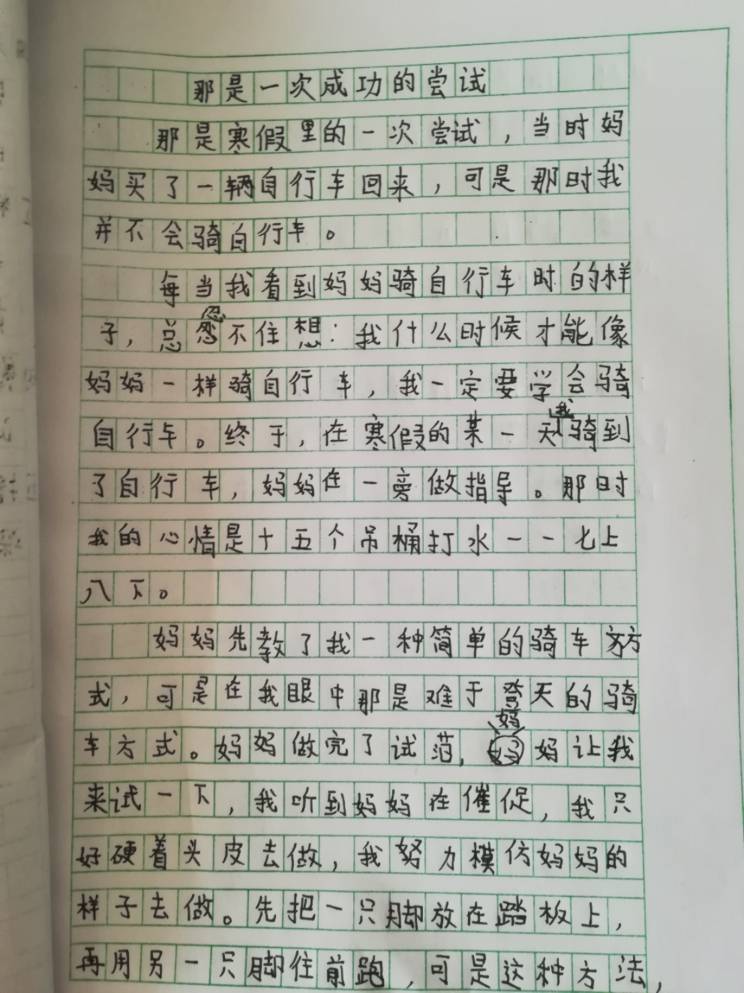 那是一次成功的尝试
那是寒假里的一次尝试，当时妈
妈买了一辆自行车回来，可是那时我
并不会骑自行车。
每当我看到妈妈骑自行车时的样
子，总忍不住想：我什么时候才能像
妈妈一样骑自行车，我一定要学会骑
自行车。终于，在寒假的某一天我骑到
了自行车，妈妈在一旁做指导。那时
我的心情是十五个吊桶打水一一七上
八下。
妈妈先教了我一种简单的骑车方
式，可是在我眼中那是难于登天的骑
车方式。妈妈做完了试范，妈妈让我
来试一下，我听到妈妈在催促，我只
好硬着头皮去做，我努力模仿妈妈的
样子去做。先把一只脚放在踏板上，
再用另一只脚往前跑，可是这种方法，